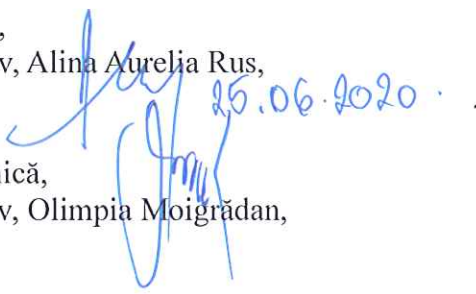 ,
v, Alina Aurelia Rus,
25.06.2020.
nică,
v, Olimpia Moigrădan,